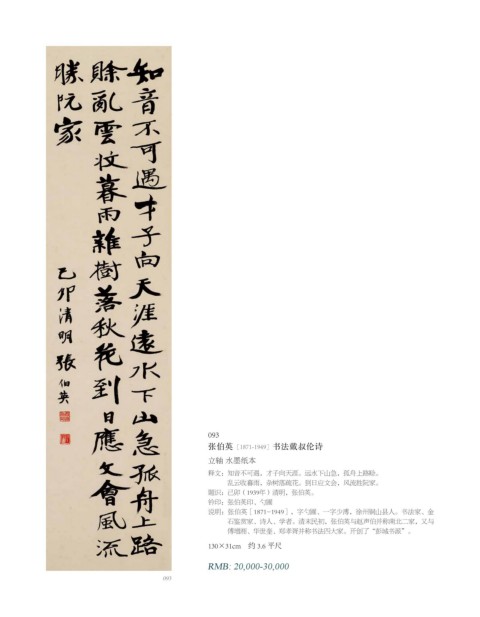 知音不可遇才子向天涯遠水下山急孤舟上路
賒亂雲收暮雨雜樹落秋花到日應文會風流
勝阮家
己卯清明張伯英
093
093
张伯英［1871-1949］书法戴叔伦诗
立轴 水墨纸本
释文：知音不可遇，才子向天涯。远水下山急，孤舟上路赊。
乱云收暮雨，杂树落疏花。到日应文会，风流胜阮家。
题识：己卯（1939年）清明，张伯英。
钤印：张伯英印、勺圃
说明：张伯英［1871-1949］，字勺圃，一字少溥，徐州铜山县人。书法家、金
石鉴赏家、诗人、学者。清末民初，张伯英与赵声伯并称南北二家，又与
傅增湘、华世奎、郑孝胥并称书法四大家，开创了“彭城书派”。
130×31cm 约 3.6 平尺
RMB: 20,000-30,000